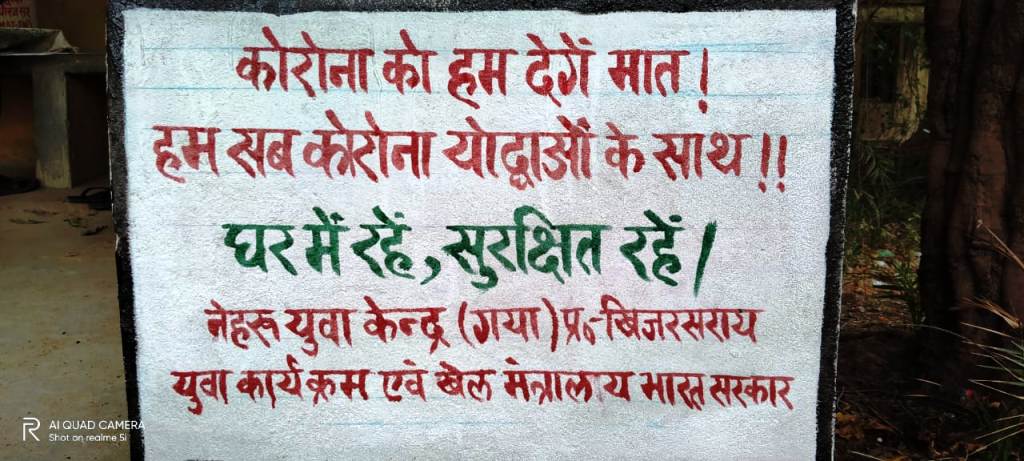 कोरोना को हम देगें मात !
हम सब कोरोना योद्वाओं के साथ !!
घर में रहें, सुरक्षित रहें /
नेहरू युवा केन्द्र (गया) प्र०-खिजरसराय
युवा कार्यक्रम एवं खेल मंत्रालाय भारत सरकार
AI QUAD CAMERA
Shot on realme 5i